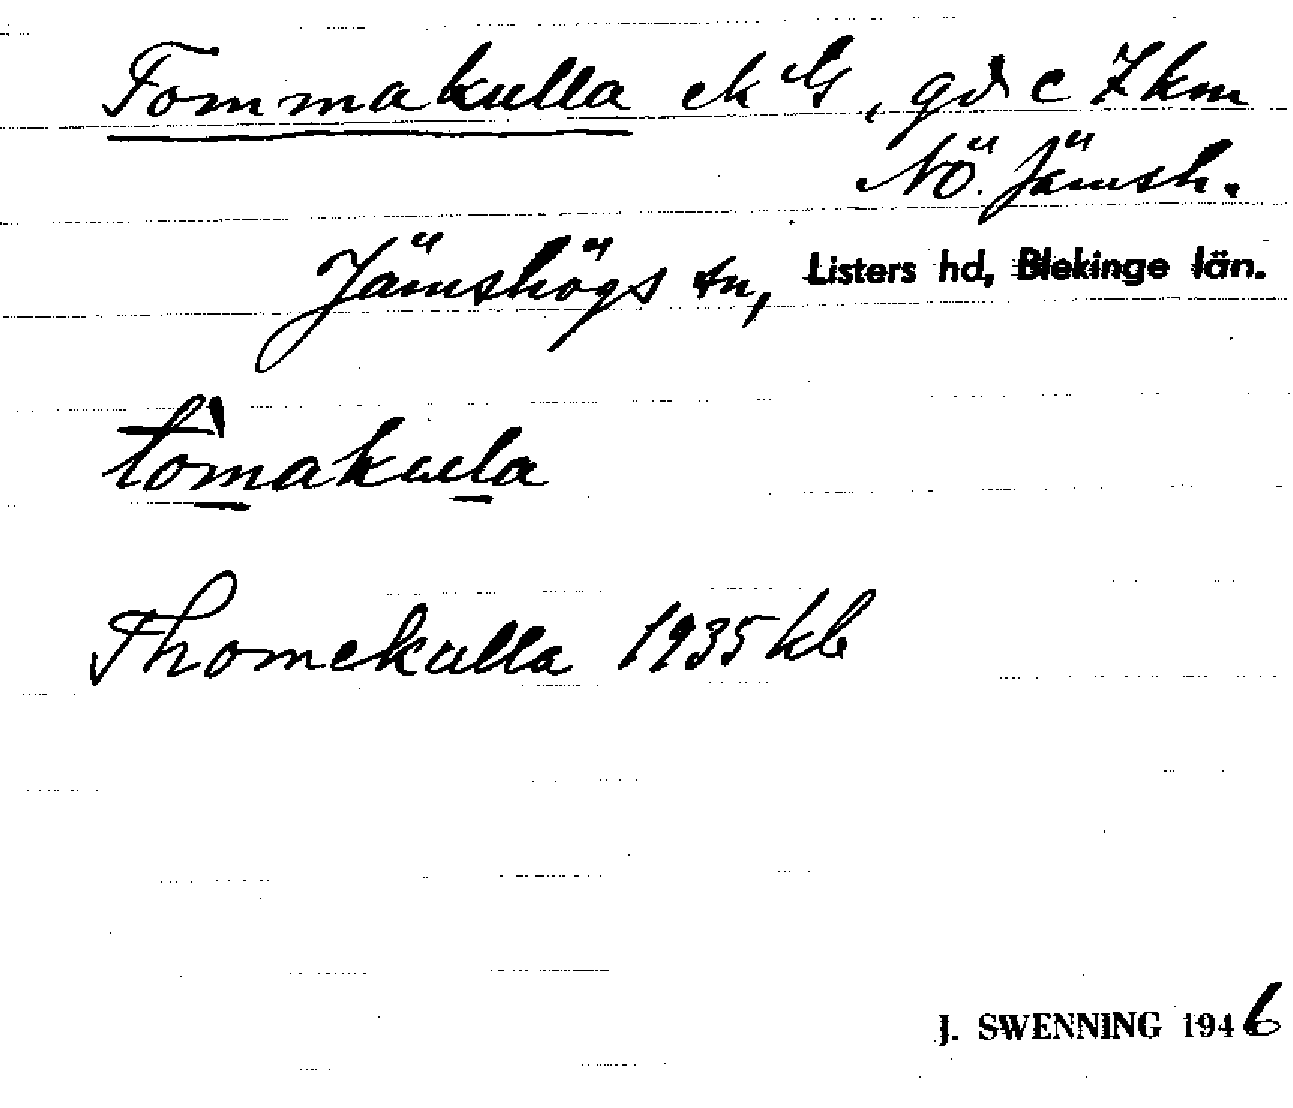 Tommakulla ek bG, gd c 7 km
NÖ. Jämsh.
Jämshögs sn, Listers hd, Blekinge län.
tòmakula
Thomekulla 1935 kb
J. SWENNING 1946